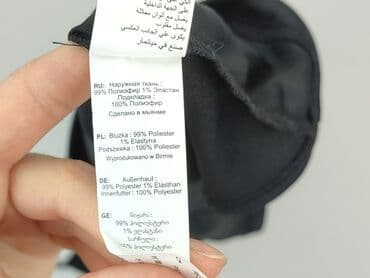 على الجهة الداخلية
يغسل مع ألوان مماثلة
يغسل مقلوب
يكوى على الجانب العكسي
صنع في ميانمار
RU: Наружная ткань :
99% Полиэфир 1% Эластан
Подкладка :
100% Полиэфир
Сделано в мьянме
PL: Bluzka : 99% Poliester
1% Elastyna
Podszewka : 100% Poliester
Wyprodukowano w Birmie
DE: Außenhaut :
99% Polyester 1% Elasthan
Innenfutter : 100% Polyester
GE: ნიჟარა :
99% პოლიესტერი
1% ელასტანი
სარჩული :